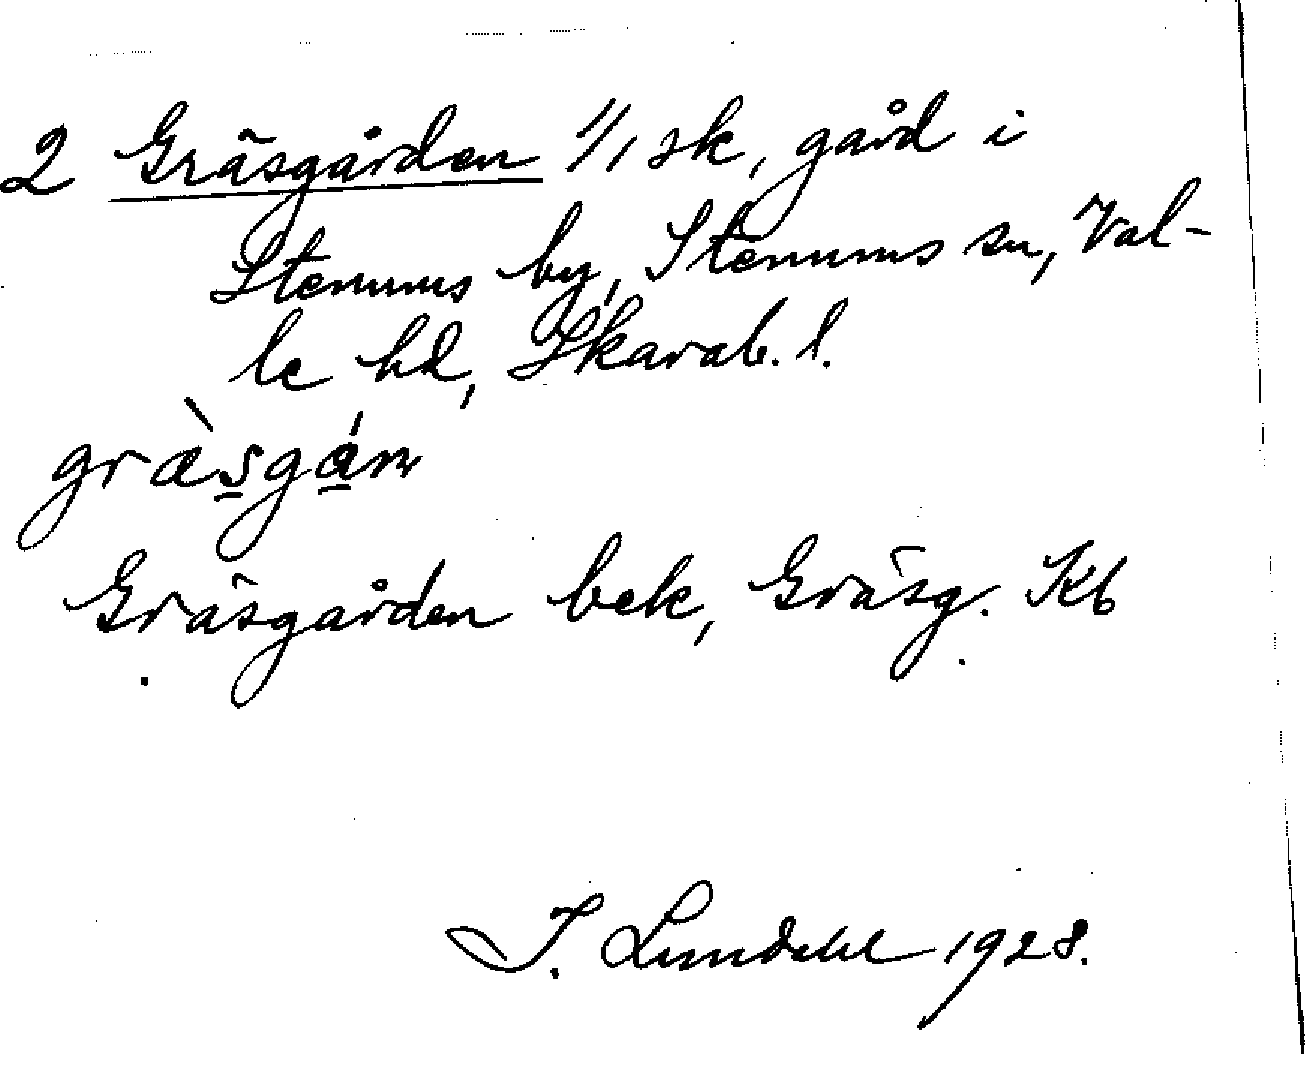 2 Gräsgården 1/1 sk, gård i
Stenums by, Stenums sn, Val-
le hd, Skarab. l.
græ̀sgán
Gräsgården bek, Gräsg. Kb
I. Lundahl 1928.